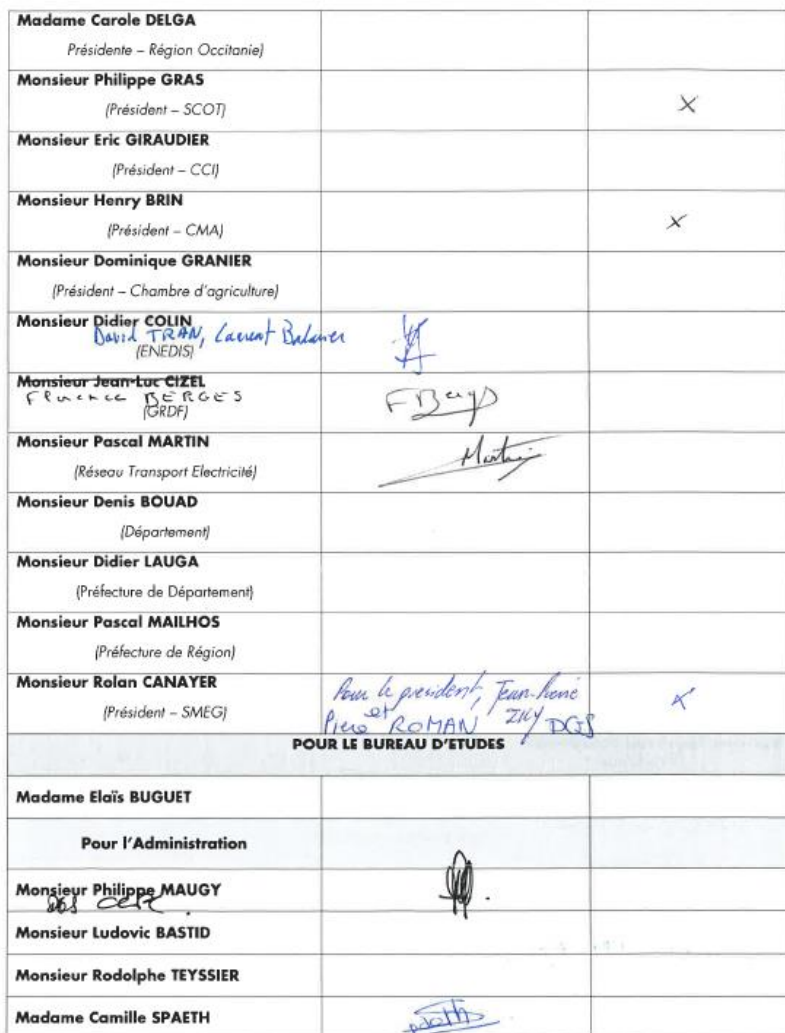 Madame Carole DELGA
Présidente – Région Occitanie)
Monsieur Philippe GRAS
(Président – SCOT)
X
Monsieur Eric GIRAUDIER
(Président – CCI)
Monsieur Henry BRIN
(Président – CMA)
X
Monsieur Dominique GRANIER
(Président – Chambre d'agriculture)
Monsieur Didier COLIN
David TRAN, Laurent
(ENEDIS)
Monsieur Jean-Luc CIZEL
Florence BERGES
(GRDF)
FBergs
Monsieur Pascal MARTIN
(Réseau Transport Electricité)
Martin
Monsieur Denis BOUAD
(Département)
Monsieur Didier LAUGA
(Préfecture de Département)
Monsieur Pascal MAILHOS
(Préfecture de Région)
Monsieur Rolan CANAYER
(Président – SMEG)
Pour le président, Jean-
et
ROMAN DGS
X
POUR LE BUREAU D'ETUDES
Madame Elaïs BUGUET
Pour l'Administration
Monsieur Philippe MAUGY
DGS
Monsieur Ludovic BASTID
Monsieur Rodolphe TEYSSIER
Madame Camille SPAETH